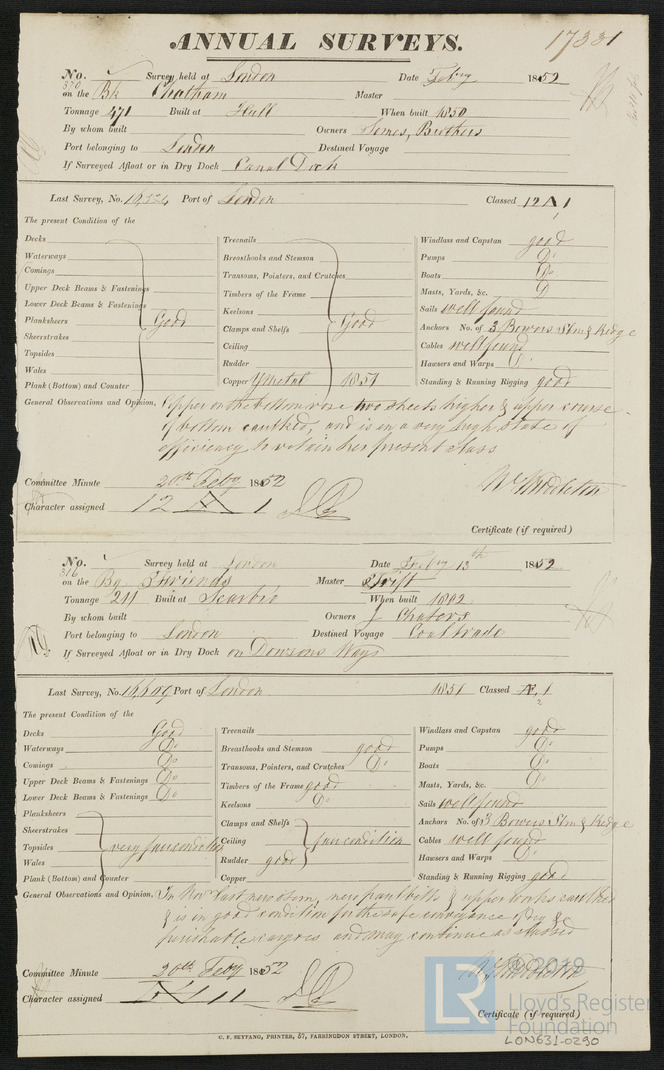 ANNUAL SURVEYS. 17331
No. 370 Survey held at London Date Feby 1852
on the Bk Chatham Master
Tonnage 471 Built at Hull When built 1850
By whom built Owners Somes, Brothers
Port belonging to London Destined Voyage
If Surveyed Afloat or in Dry Dock Canal Dock
Last Survey, No. Port of London Classed 12 A 1
The present Condition of the
Decks
Waterways
Comings
Upper Deck Beams & Fastenings
Lower Deck Beams & Fastenings
Planksheers Good
Sheerstrakes
Topsides
Wales
Plank (Bottom) and Counter
Treenails
Breasthooks and Stemson
Transoms, Pointers, and Crutches
Timbers of the Frame
Keelsons
Clamps and Shelfs Good
Ceiling
Rudder
Copper Ymetal 1851
Windlass and Capstan good
Pumps Do
Boats Do
Masts, Yards, &c. D
Sails well found
Anchors No. of 3 Bowers Strm & Kedge
Cables well found
Hawsers and Warps Do
Standing & Running Rigging good
General Observations and Opinion, Copper on the bottom rose two sheets higher & upper course
of bottom caulked, and is in a very high state of
efficiency to retain her present class
Committee Minute 20th Feby 1852 Wm Middleton
Character assigned 12 A 1
Certificate (if required)
No. 316 Survey held at London Date Feby 13th 1852
on the Bg Friends Master Swift
Tonnage 211 Built at Scarbro When built 1802
By whom built Owners J Chators
Port belonging to London Destined Voyage Coal trade
If Surveyed Afloat or in Dry Dock on Dowsons Ways
Last Survey, No. 16,609 Port of London 1851 Classed Æ 1
The present Condition of the
Decks Good
Waterways Do
Comings Do
Upper Deck Beams & Fastenings Do
Lower Deck Beams & Fastenings Do
Planksheers
Sheerstrakes
Topsides very fair condition
Wales
Plank (Bottom) and Counter
Treenails
Breasthooks and Stemson good
Transoms, Pointers, and Crutches Do
Timbers of the Frame good
Keelsons Do
Clamps and Shelfs
Ceiling fair condition
Rudder good
Copper
Windlass and Capstan good
Pumps Do
Boats Do
Masts, Yards, &c. Do
Sails well found
Anchors No. of 3 Bowers Strm & Kedge
Cables well found
Hawsers and Warps Do
Standing & Running Rigging good
General Observations and Opinion, In Nov last new stem, new paul bitts & upper works caulked
& is in good condition for the safe conveyance of dry &
perishable cargoes and may continue as classed
Committee Minute 20th Feby 1852 Wm Middleton
Character assigned
Certificate (if required)
C. F. SEYFANG, PRINTER, 57, FARRINGDON STREET, LONDON.
LR
© 2019
Lloyd's Register
Foundation
LON631-0290